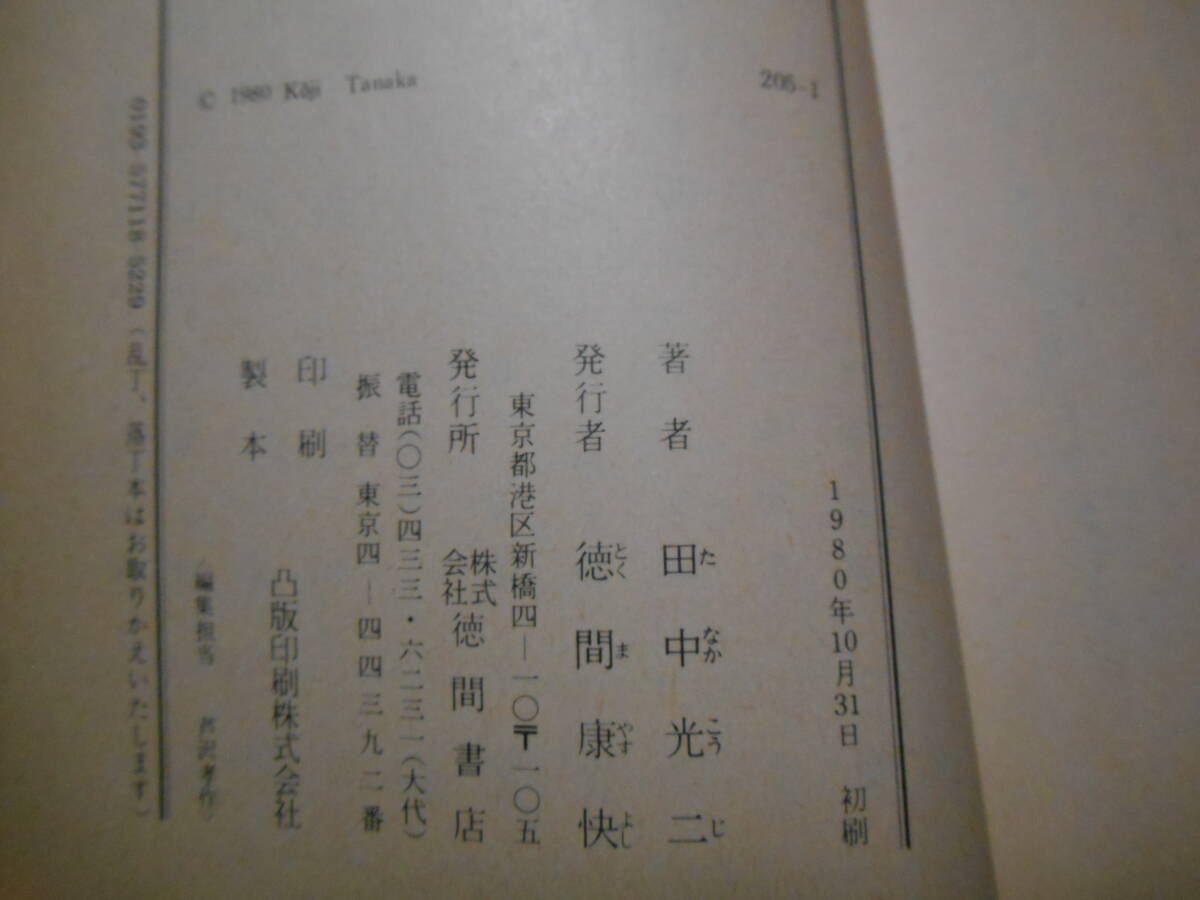 © 1980 Kōji Tanaka
205-1
1980年10月31日 初刷
著者 田中光二
たなかこうじ
発行者 徳間康快
とくまやすよし
東京都港区新橋四―一〇〒一〇五
発行所 株式会社徳間書店
電話(〇三)四三三・六二三一(大代)
振替 東京四―四四三九二番
印刷
製本
凸版印刷株式会社
(編集担当 芦沢孝作)
0193-577118-5229 (乱丁、落丁本はお取りかえいたします)